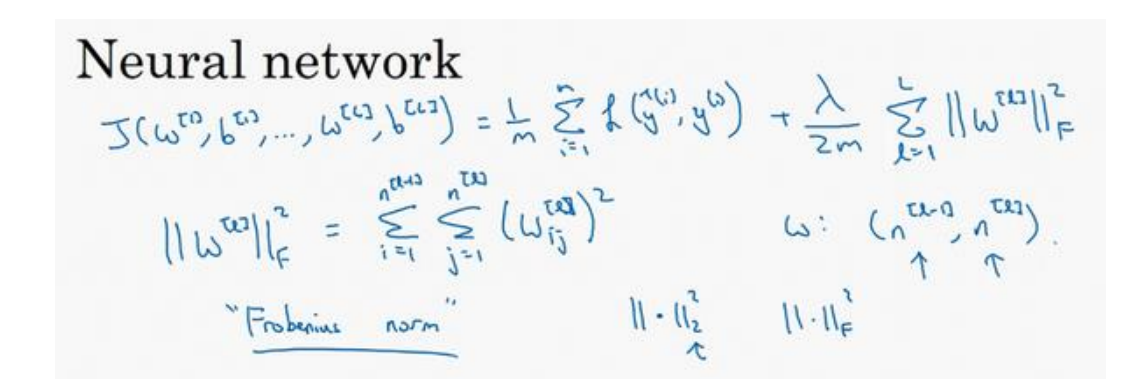 Neural network
J(ω^[1], b^[1], ..., ω^[L], b^[L]) = 1/m ∑_{i=1}^{n} ℒ(ŷ^(i), y^(i)) + λ/2m ∑_{l=1}^{L} ||ω^[l]||_F^2
||ω^[l]||_F^2 = ∑_{i=1}^{n^[l-1]} ∑_{j=1}^{n^[l]} (ω_ij^[l])^2 ω: (n^[l-1], n^[l]).
↑ ↑
"Frobenius norm" ||·||_2^2 ||·||_F^2
↑